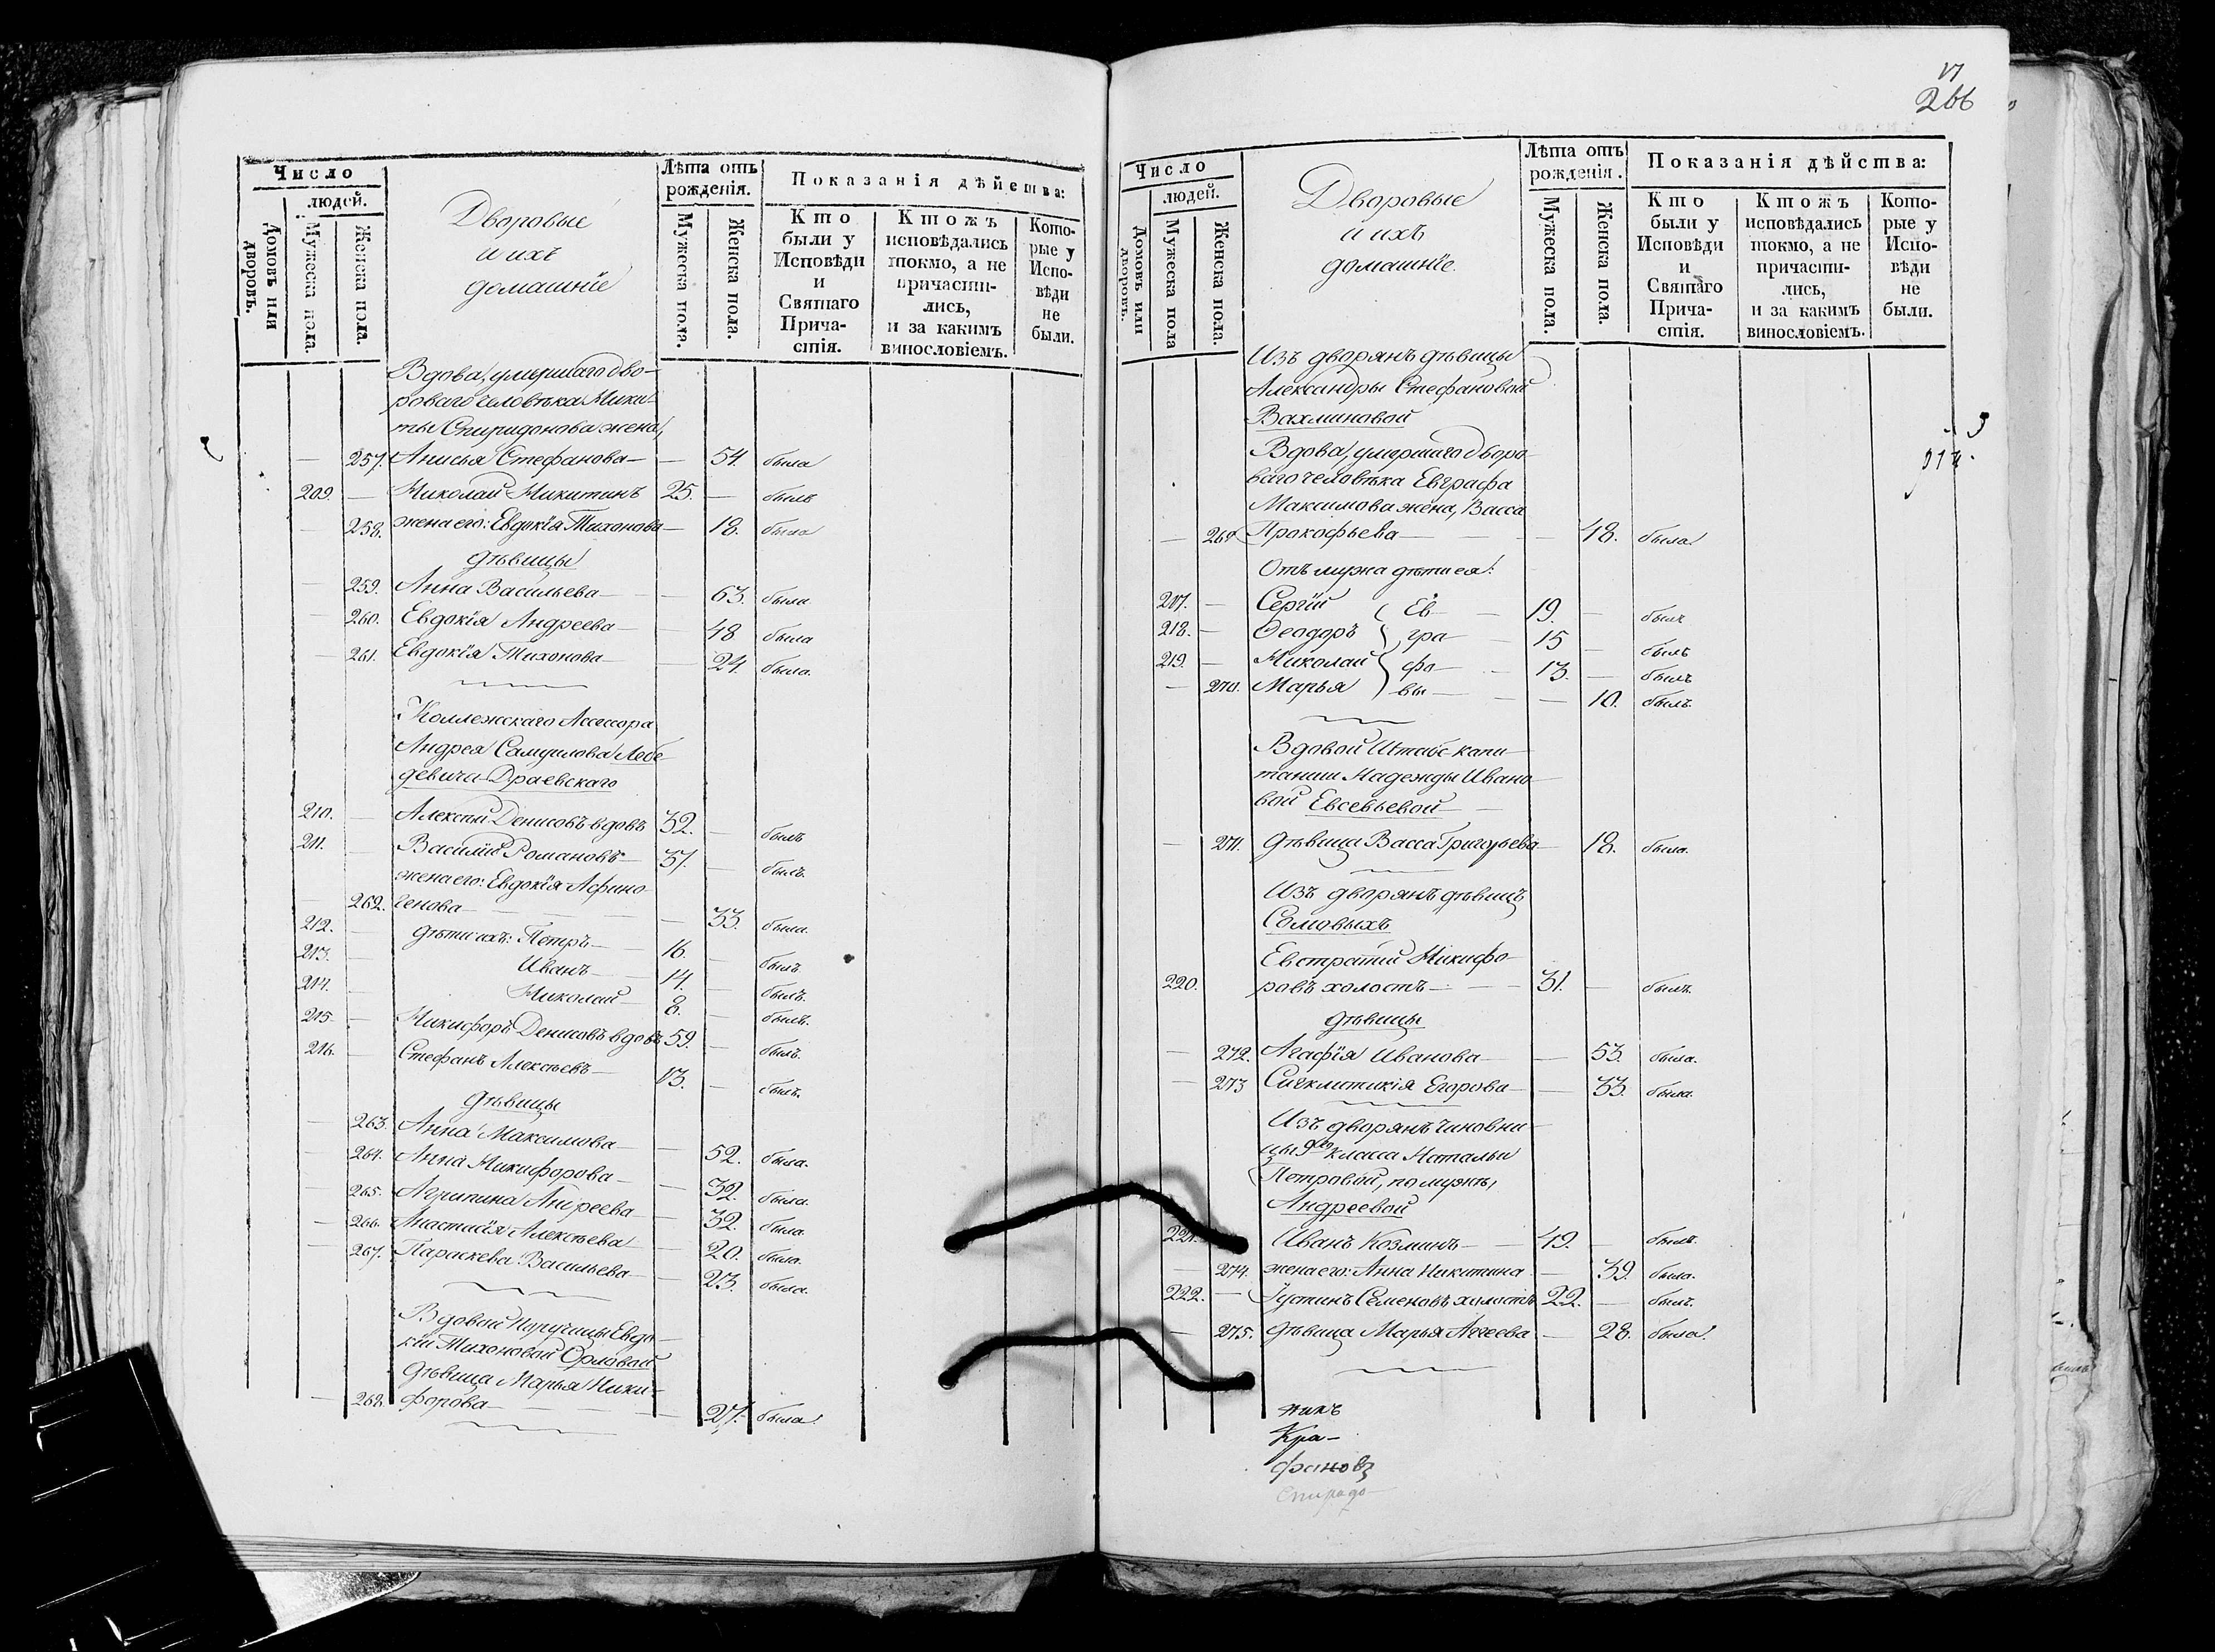 Число
людей.
Домовъ или дворовъ.
Мужеска пола.
Женска пола.
Дворовые
и ихъ
домашніе
Лѣта отъ рожденія.
Мужеска пола.
Женска пола.
Показанія дѣйства:
Кто были у Исповѣди и Святаго Прича-стія.
Ктожъ исповѣдались токмо, а не причасти-лись, и за какимъ винословіемъ.
Кото-рые у Испо-вѣди не были.
Вдова, умершаго дво-
роваго человѣка Ники-
ты Спиридонова жена,
— 257. Анисья Стефанова — — 54. была
209. — Николай Никитинъ 25. — былъ
— 258. жена его: Евдокія Тихонова — 18. была
дѣвицы
— 259. Анна Васильева — — 63. была
— 260. Евдокія Андреева — — 48 была
— 261. Евдокія Тихонова — — 24. была.
Коллежскаго Ассессора
Андрея Самуилова Лебе-
девича-Драевскаго
210. — Алексѣй Денисовъ вдовъ 32. — былъ
211. — Василій Романовъ — 37. — былъ.
жена его: Евдокія Афино-
— 262. генова — — 33. была.
212. — дѣти ихъ: Петръ — 16. — былъ.
213. — Иванъ — 14. — былъ.
214. — Николай — 8. — былъ.
215. — Никифоръ Денисовъ вдовъ 59. — былъ.
216. — Стефанъ Алексѣевъ — 13. — былъ.
дѣвицы
— 263. Анна Максимова — — 52. была.
— 264. Анна Никифорова — — 32. была.
— 265. Агрипина Андреева — — 32. была.
— 266. Анастасія Алексѣева — — 20. была.
— 267. Параскева Васильева — — 23. была.
Вдовой Поручицы Евдо-
кіи Тихоновой Орловой
дѣвица Марья Ники-
— 268. форова — — 27. была.
17
266
Число
людей.
Домовъ или дворовъ.
Мужеска пола
Женска пола.
Дворовые
и ихъ
домашніе.
Лѣта отъ рожденія.
Мужеска пола.
Женска пола.
Показанія дѣйства:
Кто были у Исповѣди и Святаго Прича-стія.
Ктожъ исповѣдались токмо, а не причасти-лись, и за какимъ винословіемъ.
Кото-рые у Испо-вѣди не были.
Изъ дворянъ дѣвицы
Александры Стефановой
Вахминовой
Вдова, умершаго дворо-
ваго человѣка Евграфа
Максимова жена, Васса
— 269 Прокофьева — — 48. была.
Отъ мужа дѣти ея:
217. — Сергій Ев- — 19. — былъ
218. — Ѳеодоръ гра- — 15 — былъ
219. — Николай фо- — 13. — былъ
— 270. Марья вы — — 10. былъ.
Вдовой Штабс-капи-
танши Надежды Ивано-
вой Евсевьевой —
— 271. дѣвица Васса Григорьева — 18. была.
Изъ дворянъ дѣвицъ
Сомовыхъ
Евстратій Никифо-
220. ровъ холостъ — 31. — былъ.
дѣвицы
— 272. Агафія Иванова — — 53. была.
— 273 Сигклитикія Егорова — — 33. была.
Изъ дворянъ чиновни-
цы 9го класса Натальи
Петровой, по мужѣ,
Андреевой
221. Иванъ Козминъ — 49. — былъ.
— 274. жена его: Анна Никитина — 39. была.
222. — Іустинъ Семеновъ холостъ 22. — былъ.
— 275. дѣвица Марья Агеева — 28. была.
никъ
Кра-
фановъ
Спиридо-